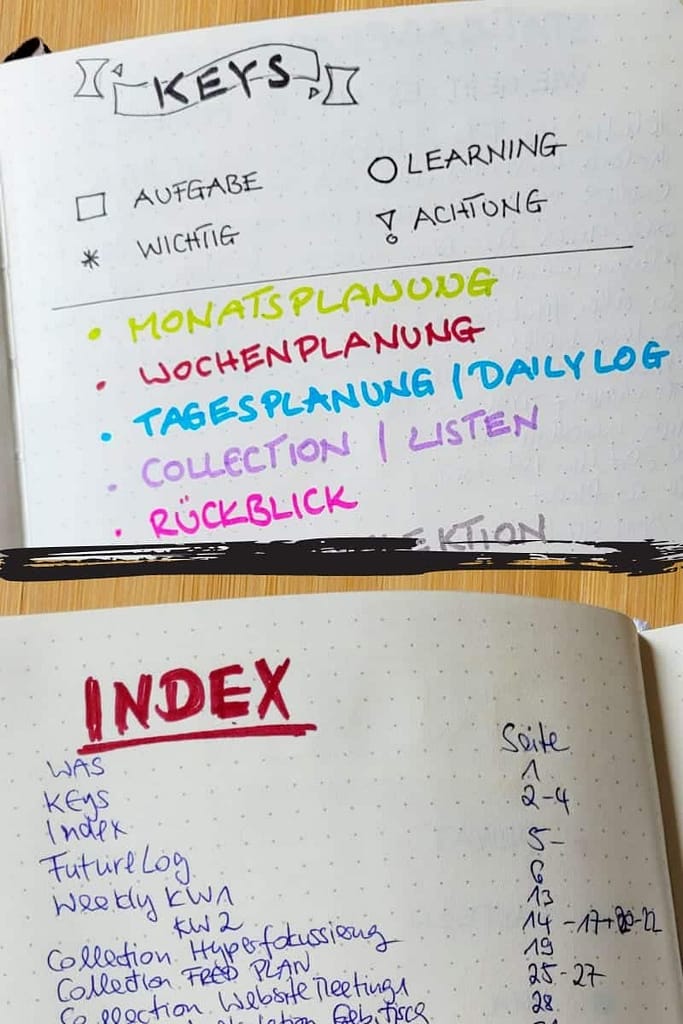 KEYS
AUFGABE
LEARNING
* WICHTIG
ACHTUNG
• MONATSPLANUNG
• WOCHENPLANUNG
• TAGESPLANUNG / DAILY LOG
• COLLECTION / LISTEN
• RÜCKBLICK
EKTION
INDEX
WAS Seite
Keys 1
Index 2-4
FutureLog 5-
Weekly KW1 6
KW2 13
Collection Hyperfokussierung 14-17+20-22
Collection FRED PLAN 19
Collection Website Meetings 25-27
28